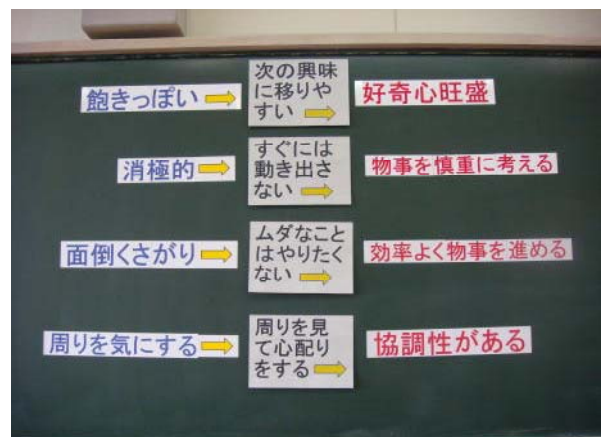 飽きっぽい
次の興味
に移りや
すい
好奇心旺盛
消極的
すぐには
動き出さ
ない
物事を慎重に考える
面倒くさがり
ムダなこと
はやりたく
ない
効率よく物事を進める
周りを気にする
周りを見
て心配り
をする
協調性がある